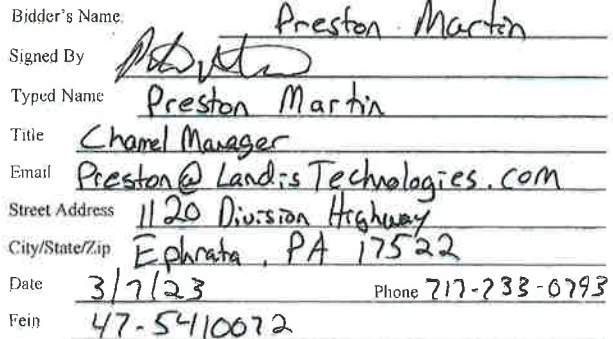 Bidder's Name Preston Martin
Signed By
Typed Name Preston Martin
Title Channel Manager
Email Preston@LandisTechnologies.com
Street Address 1120 Division Highway
City/State/Zip Ephrata, PA 17522
Date 3/7/23 Phone 717-733-0793
Fein 47-5410072